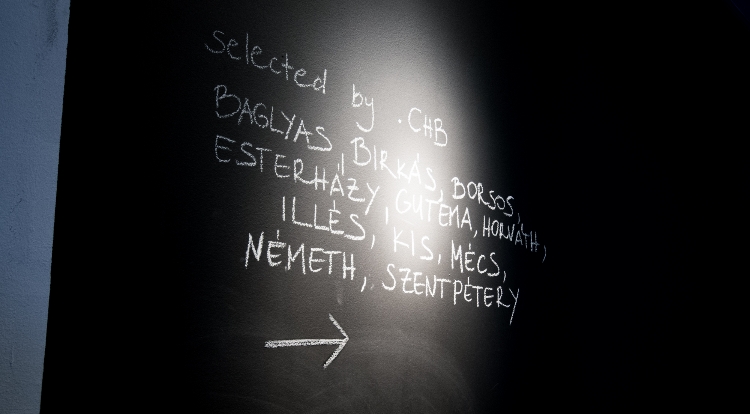 selected by .CHB
BAGLYAS, BIRKÁS, BORSOS,
ESTERHÁZY, GUTEMA, HORVÁTH,
ILLÉS, KIS, MÉCS,
NÉMETH, SZENTPÉTERY
→